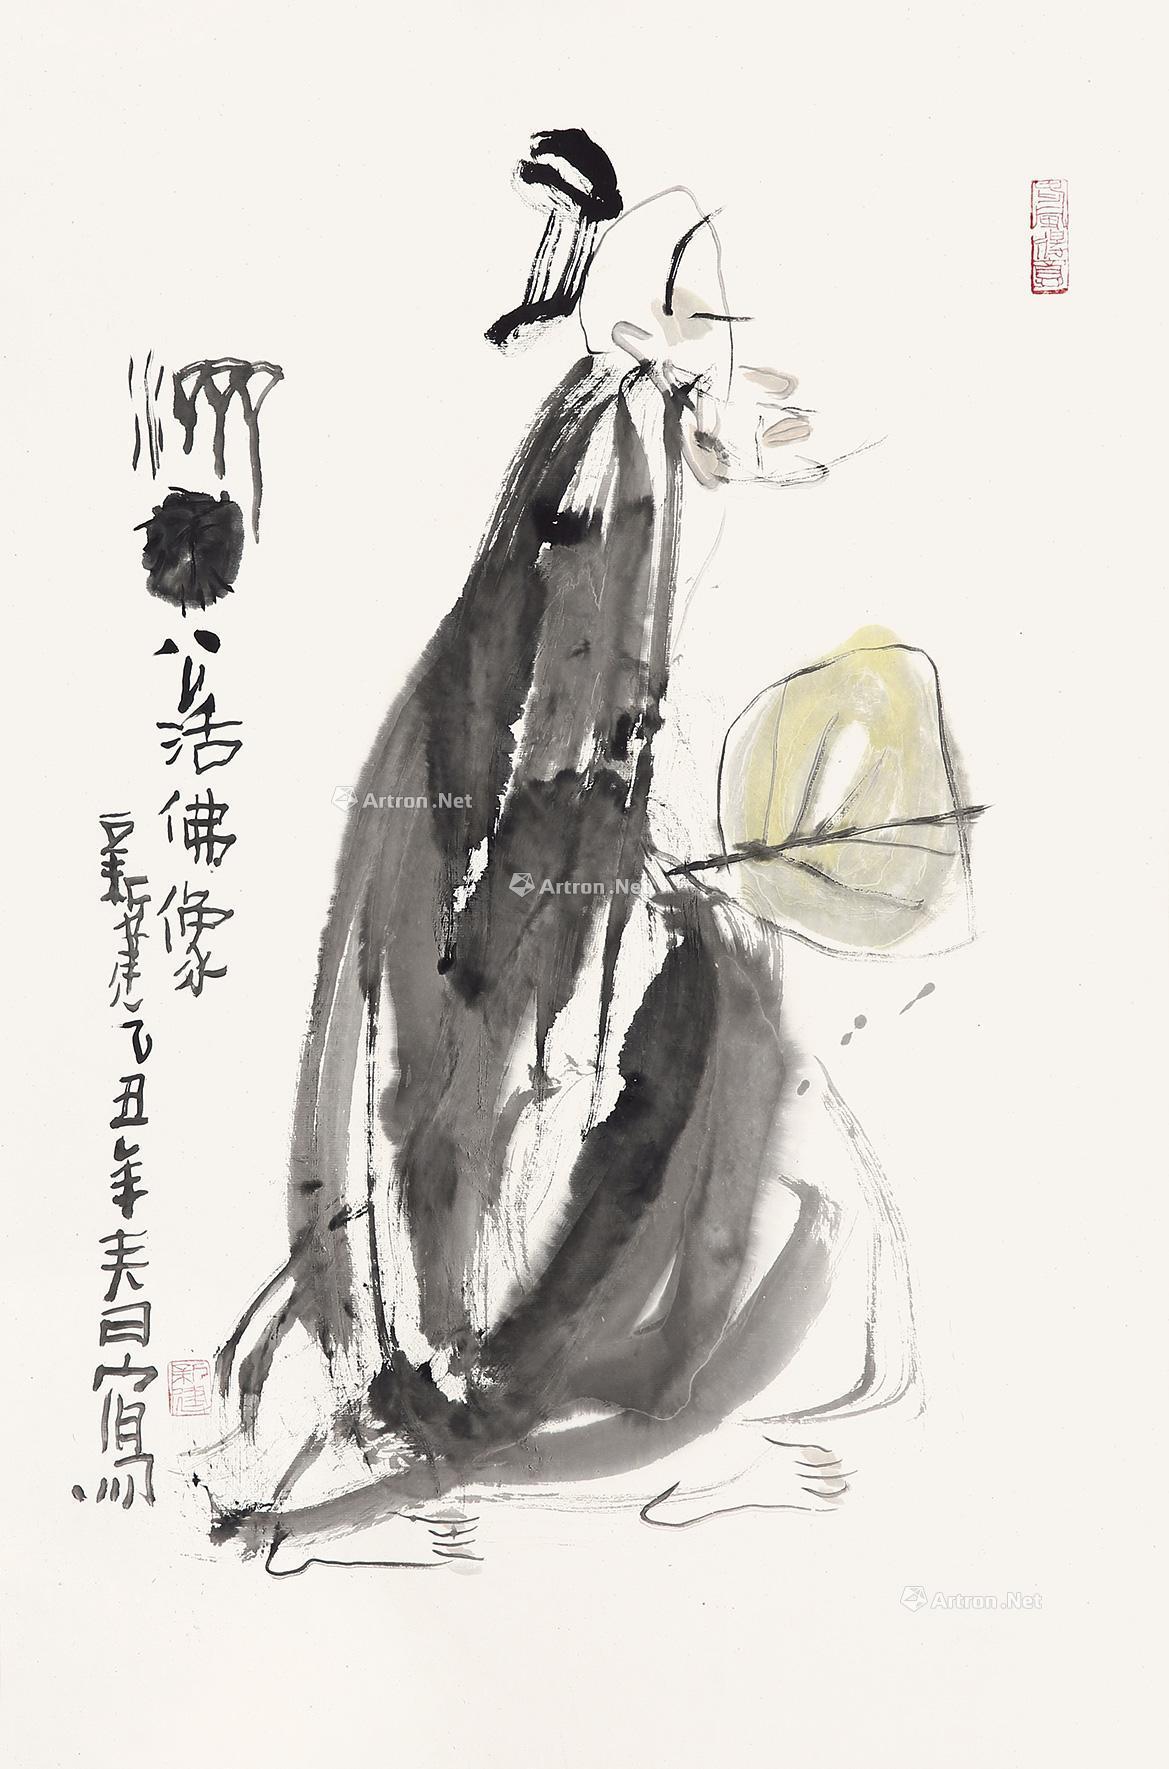 济颠公活佛像
新建乙丑年春日写
新建
Artron.Net
Artron.Net
Artron.Net